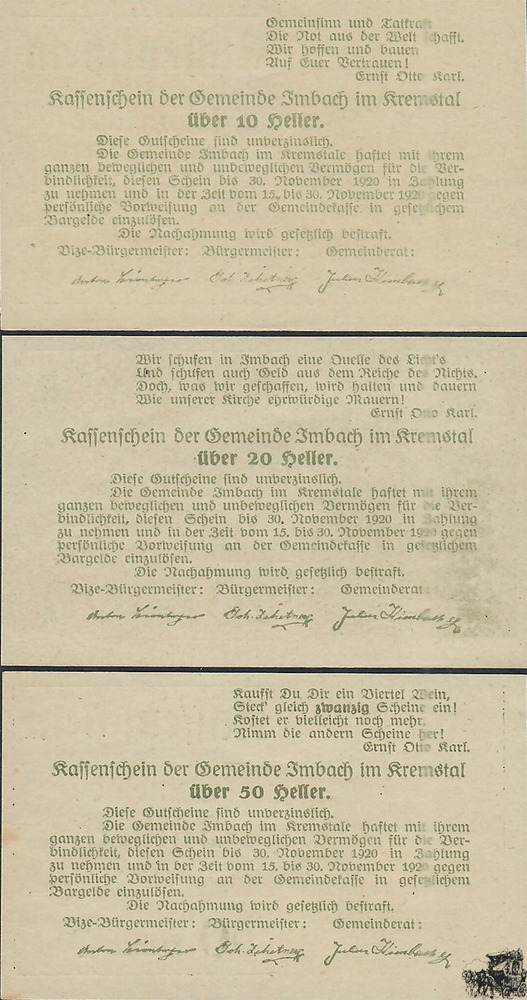 Gemeinsinn und Tatkraft
Die Not aus der Welt schafft.
Wir hoffen und bauen
Auf Euer Vertrauen!
Ernst Otto Karl.
Kassenschein der Gemeinde Imbach im Kremstal
über 10 Heller.
Diese Gutscheine sind unverzinslich.
Die Gemeinde Imbach im Kremstale haftet mit ihrem
ganzen beweglichen und unbeweglichen Vermögen für die Ver-
bindlichkeit, diesen Schein bis 30. November 1920 in Zahlung
zu nehmen und in der Zeit vom 15. bis 30. November 1920 gegen
persönliche Vorweisung an der Gemeindekasse in gesetzlichem
Bargelde einzulösen.
Die Nachahmung wird gesetzlich bestraft.
Vize-Bürgermeister: Bürgermeister: Gemeinderat:
Wir schufen in Imbach eine Quelle des Licht's
Und schufen auch Geld aus dem Reiche des Nichts.
Doch, was wir geschaffen, wird halten und dauern
Wie unserer Kirche ehrwürdige Mauern!
Ernst Otto Karl.
Kassenschein der Gemeinde Imbach im Kremstal
über 20 Heller.
Diese Gutscheine sind unverzinslich.
Die Gemeinde Imbach im Kremstale haftet mit ihrem
ganzen beweglichen und unbeweglichen Vermögen für die Ver-
bindlichkeit, diesen Schein bis 30. November 1920 in Zahlung
zu nehmen und in der Zeit vom 15. bis 30. November 1920 gegen
persönliche Vorweisung an der Gemeindekasse in gesetzlichem
Bargelde einzulösen.
Die Nachahmung wird gesetzlich bestraft.
Vize-Bürgermeister: Bürgermeister: Gemeinderat:
Kaufst Du Dir ein Viertel Wein,
Steck' gleich zwanzig Scheine ein!
Kostet er vielleicht noch mehr
Nimm die andern Scheine her!
Ernst Otto Karl.
Kassenschein der Gemeinde Imbach im Kremstal
über 50 Heller.
Diese Gutscheine sind unverzinslich.
Die Gemeinde Imbach im Kremstale haftet mit ihrem
ganzen beweglichen und unbeweglichen Vermögen für die Ver-
bindlichkeit, diesen Schein bis 30. November 1920 in Zahlung
zu nehmen und in der Zeit vom 15. bis 30. November 1920 gegen
persönliche Vorweisung an der Gemeindekasse in gesetzlichem
Bargelde einzulösen.
Die Nachahmung wird gesetzlich bestraft.
Vize-Bürgermeister: Bürgermeister: Gemeinderat: